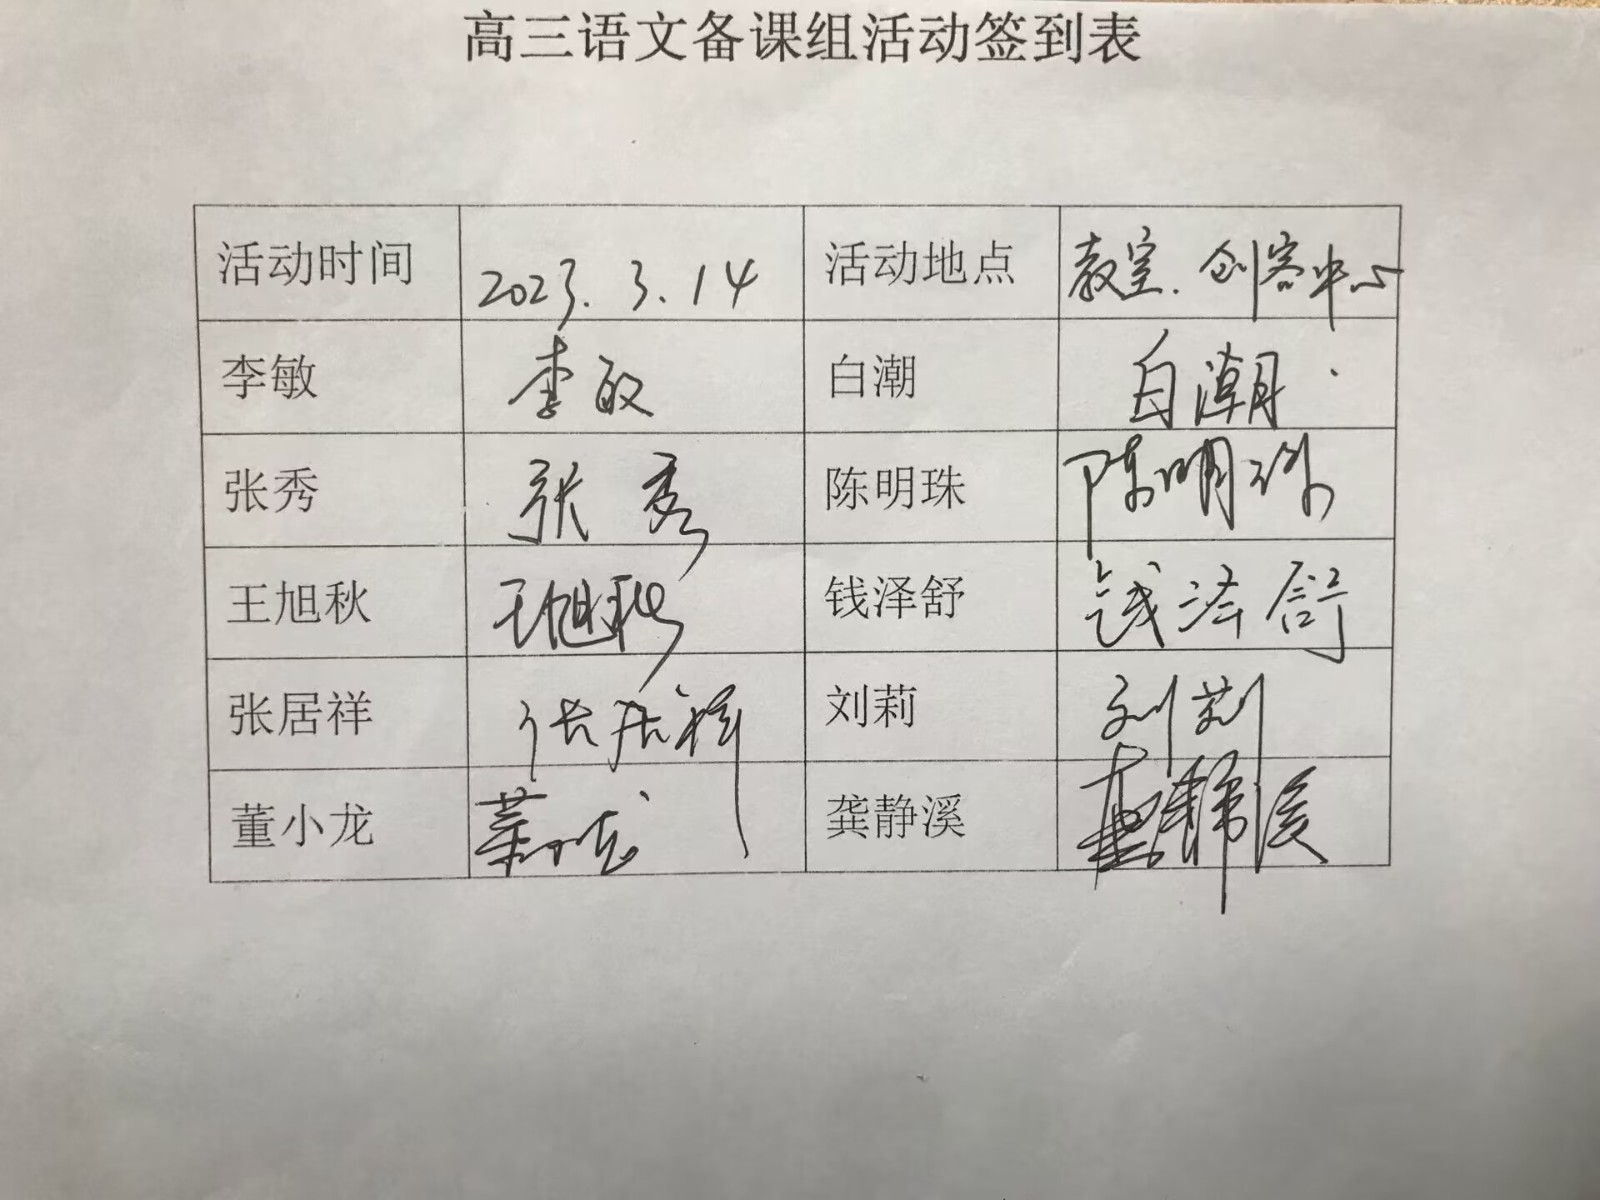 高三语文备课组活动签到表
活动时间 2023.3.14 活动地点 教室、创客中心
李敏 李敏 白潮 白潮
张秀 张秀 陈明珠 陈明珠
王旭秋 王旭秋 钱泽舒 钱泽舒
张居祥 张居祥 刘莉 刘莉
董小龙 董小龙 龚静溪 龚静溪